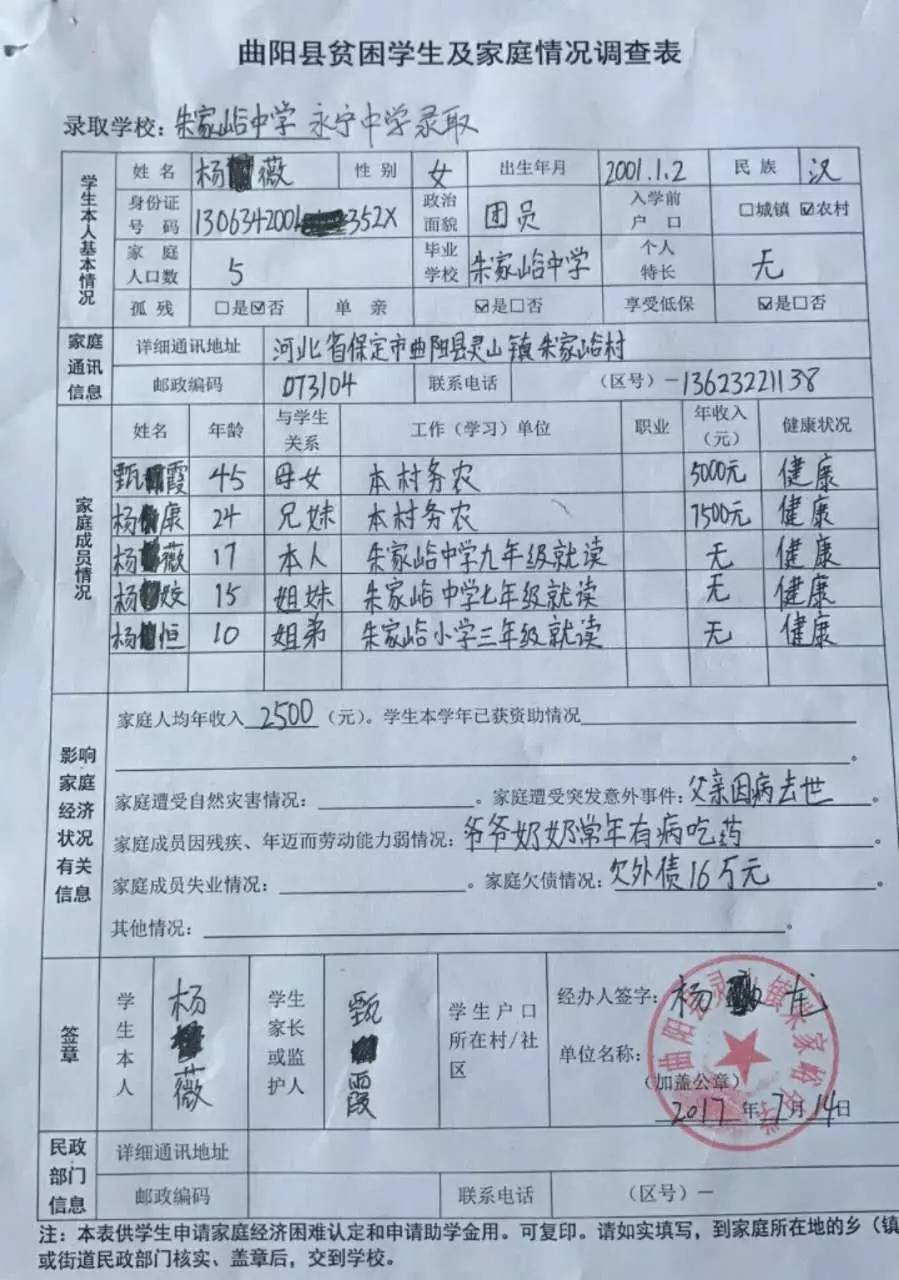 曲阳县贫困学生及家庭情况调查表
录取学校：朱家峪中学 永宁中学录取
学生本人基本情况
姓名 杨 薇 性别 女 出生年月 2001.1.2 民族 汉
身份证号码 13063420010 352X 政治面貌 团员 入学前户口 □城镇 ☑农村
家庭人口数 5 毕业学校 朱家峪中学 个人特长 无
孤残 □是☑否 单亲 ☑是□否 享受低保 ☑是□否
家庭通讯信息
详细通讯地址 河北省保定市曲阳县灵山镇朱家峪村
邮政编码 073104 联系电话 （区号）-13623221138
家庭成员情况
姓名 年龄 与学生关系 工作（学习）单位 职业 年收入（元） 健康状况
甄 霞 45 母女 本村务农 5000元 健康
杨 康 24 兄妹 本村务农 7500元 健康
杨 薇 17 本人 朱家峪中学九年级就读 无 健康
杨 姣 15 姐妹 朱家峪中学七年级就读 无 健康
杨 恒 10 姐弟 朱家峪小学三年级就读 无 健康
影响家庭经济状况有关信息
家庭人均年收入 2500 （元）。学生本学年已获资助情况
。
家庭遭受自然灾害情况： 。家庭遭受突发意外事件：父亲因病去世。
家庭成员因残疾、年迈而劳动能力弱情况：爷爷奶奶常年有病吃药。
家庭成员失业情况： 。家庭欠债情况：欠外债16万元。
其他情况： 。
签章
学生本人 杨 薇 学生家长或监护人 甄 霞 学生户口所在村/社区
经办人签字：杨 龙
单位名称：
（加盖公章）
2017年7月14日
民政部门信息
详细通讯地址
邮政编码 联系电话 （区号）－
注：本表供学生申请家庭经济困难认定和申请助学金用。可复印。请如实填写，到家庭所在地的乡（镇
或街道民政部门核实、盖章后，交到学校。